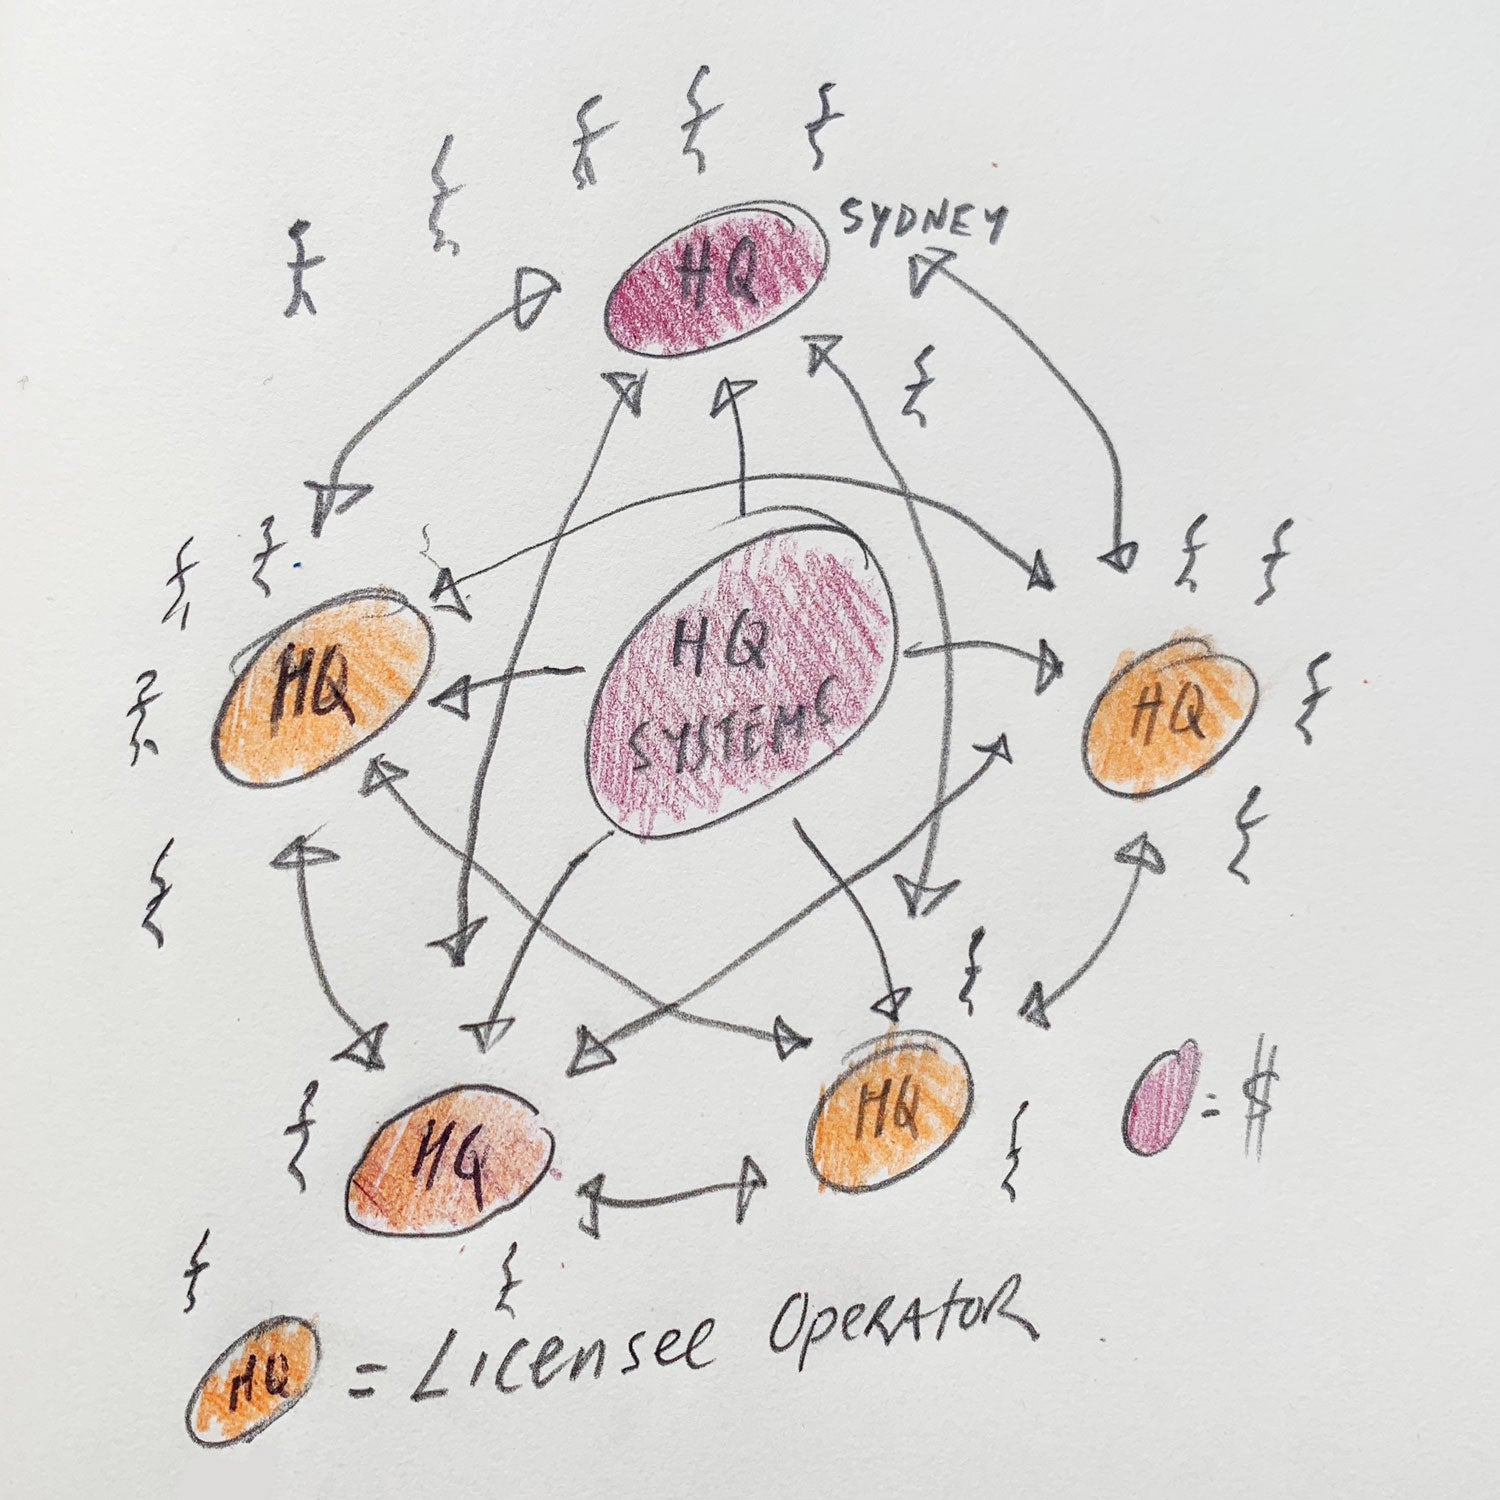 HQ
SYDNEY
HQ
SYSTEMS
HQ
HQ
HQ
HQ
= $
HQ = Licensee Operator